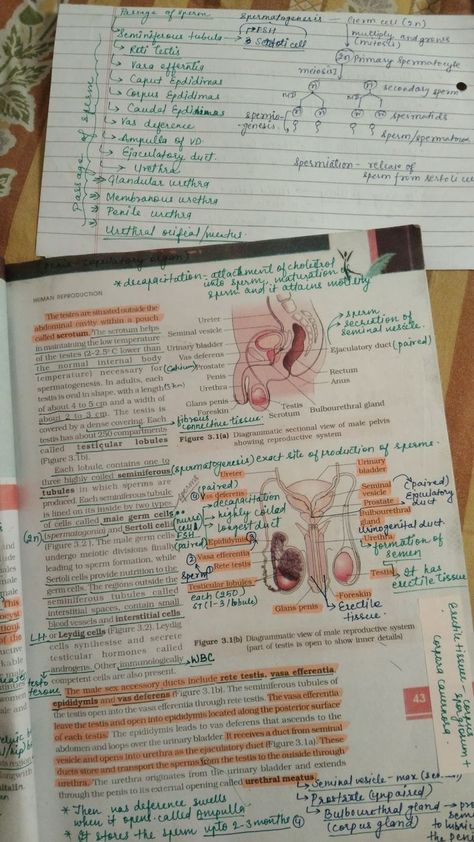 Passage of sperm
Seminiferous tubule
Reti testis
Vasa efferentia
Caput Epdidimas
Corpus Epdidimas
Caudal Epdidimas
Vas deference
Ampulla of VD
Ejaculatory duct
Urethra
Glandular urethra
Membranous urethra
Penile urethra
Urethral orificial/meatus
Passage of sperm
Spermatogenesis - Germ cell (2n)
FSH
Sertoli cell
multiply and grows
(mitosis)
2n Primary spermatocyte
meiosis
n n secondary sperm
n n n n spermatids
spermio-
genesis
sperm
spermiation - release of
sperm from sertoli cell
* decapacitation - attachment of cholestrol
unto sperm, maturation of
sperm and it attains motility
HUMAN REPRODUCTION
The testes are situated outside the
abdominal cavity within a pouch
called scrotum. The scrotum helps
in maintaining the low temperature
of the testes (2–2.5° C lower than
the normal internal body
temperature) necessary for
spermatogenesis. In adults, each
testis is oval in shape, with a length
of about 4 to 5 cm and a width of
about 2 to 3 cm. The testis is
covered by a dense covering. Each
testis has about 250 compartments
called testicular lobules
(Figure 3.1b).
Each lobule contains one to
three highly coiled seminiferous
tubules in which sperms are
produced. Each seminiferous tubule
is lined on its inside by two types
of cells called male germ cells
(spermatogonia) and Sertoli cells
(Figure 3.2). The male germ cells
undergo meiotic divisions finally
leading to sperm formation, while
Sertoli cells provide nutrition to the
germ cells. The regions outside the
seminiferous tubules called
interstitial spaces, contain small
blood vessels and interstitial cells
or Leydig cells (Figure 3.2). Leydig
cells synthesise and secrete
testicular hormones called
androgens. Other immunologically
competent cells are also present.
(2n)
LH
WBC
Ureter
Seminal vesicle
Urinary bladder
Vas deferens
Prostate
Penis
Urethra
Glans penis
Foreskin
Testis
Scrotum
Bulbourethral gland
Ejaculatory duct (paired)
Rectum
Anus
sperm
secretion of
seminal vesicle
fibrous
connective tissue
Figure 3.1(a) Diagrammatic sectional view of male pelvis
showing reproductive system
(spermatogenesis) exact site of production of sperms
Ureter
(paired)
Vas deferens
decapacitation
highly coiled
longest duct
nurse
cell
FSH
(paired) Epididymis
Vasa efferentia
Rete testis
Sperm
Testicular lobules
each (250)
ST (1-3/lobule)
Glans penis
Urinary
bladder
Seminal
vesicle
(paired)
Prostate
Bulbourethral
gland
Urethra
Urinogenital duct
formation of
semen
Testis
It has
erectile tissue
Foreskin
Erectile
tissue
Figure 3.1(b) Diagrammatic view of male reproductive system
(part of testis is open to show inner details)
The male sex accessory ducts include rete testis, vasa efferentia,
epididymis and vas deferens (Figure 3.1b). The seminiferous tubules of
the testis open into the vasa efferentia through rete testis. The vasa efferentia
leave the testis and open into epididymis located along the posterior surface
of each testis. The epididymis leads to vas deferens that ascends to the
abdomen and loops over the urinary bladder. It receives a duct from seminal
vesicle and opens into urethra as the ejaculatory duct (Figure 3.1a). These
ducts store and transport the sperms from the testis to the outside through
urethra. The urethra originates from the urinary bladder and extends
through the penis to its external opening called urethral meatus.
43
Seminal vesicle - max
Prostate (unpaired)
Bulbourethral gland
* Then vas deference swells
when it opens called Ampulla
* It stores the sperm upto 2-3 months